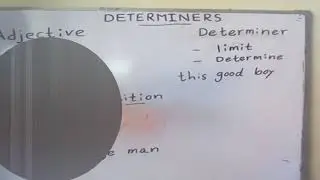 DETERMINERS
Adjective Determiner
- limit
- Determine
this good boy
man